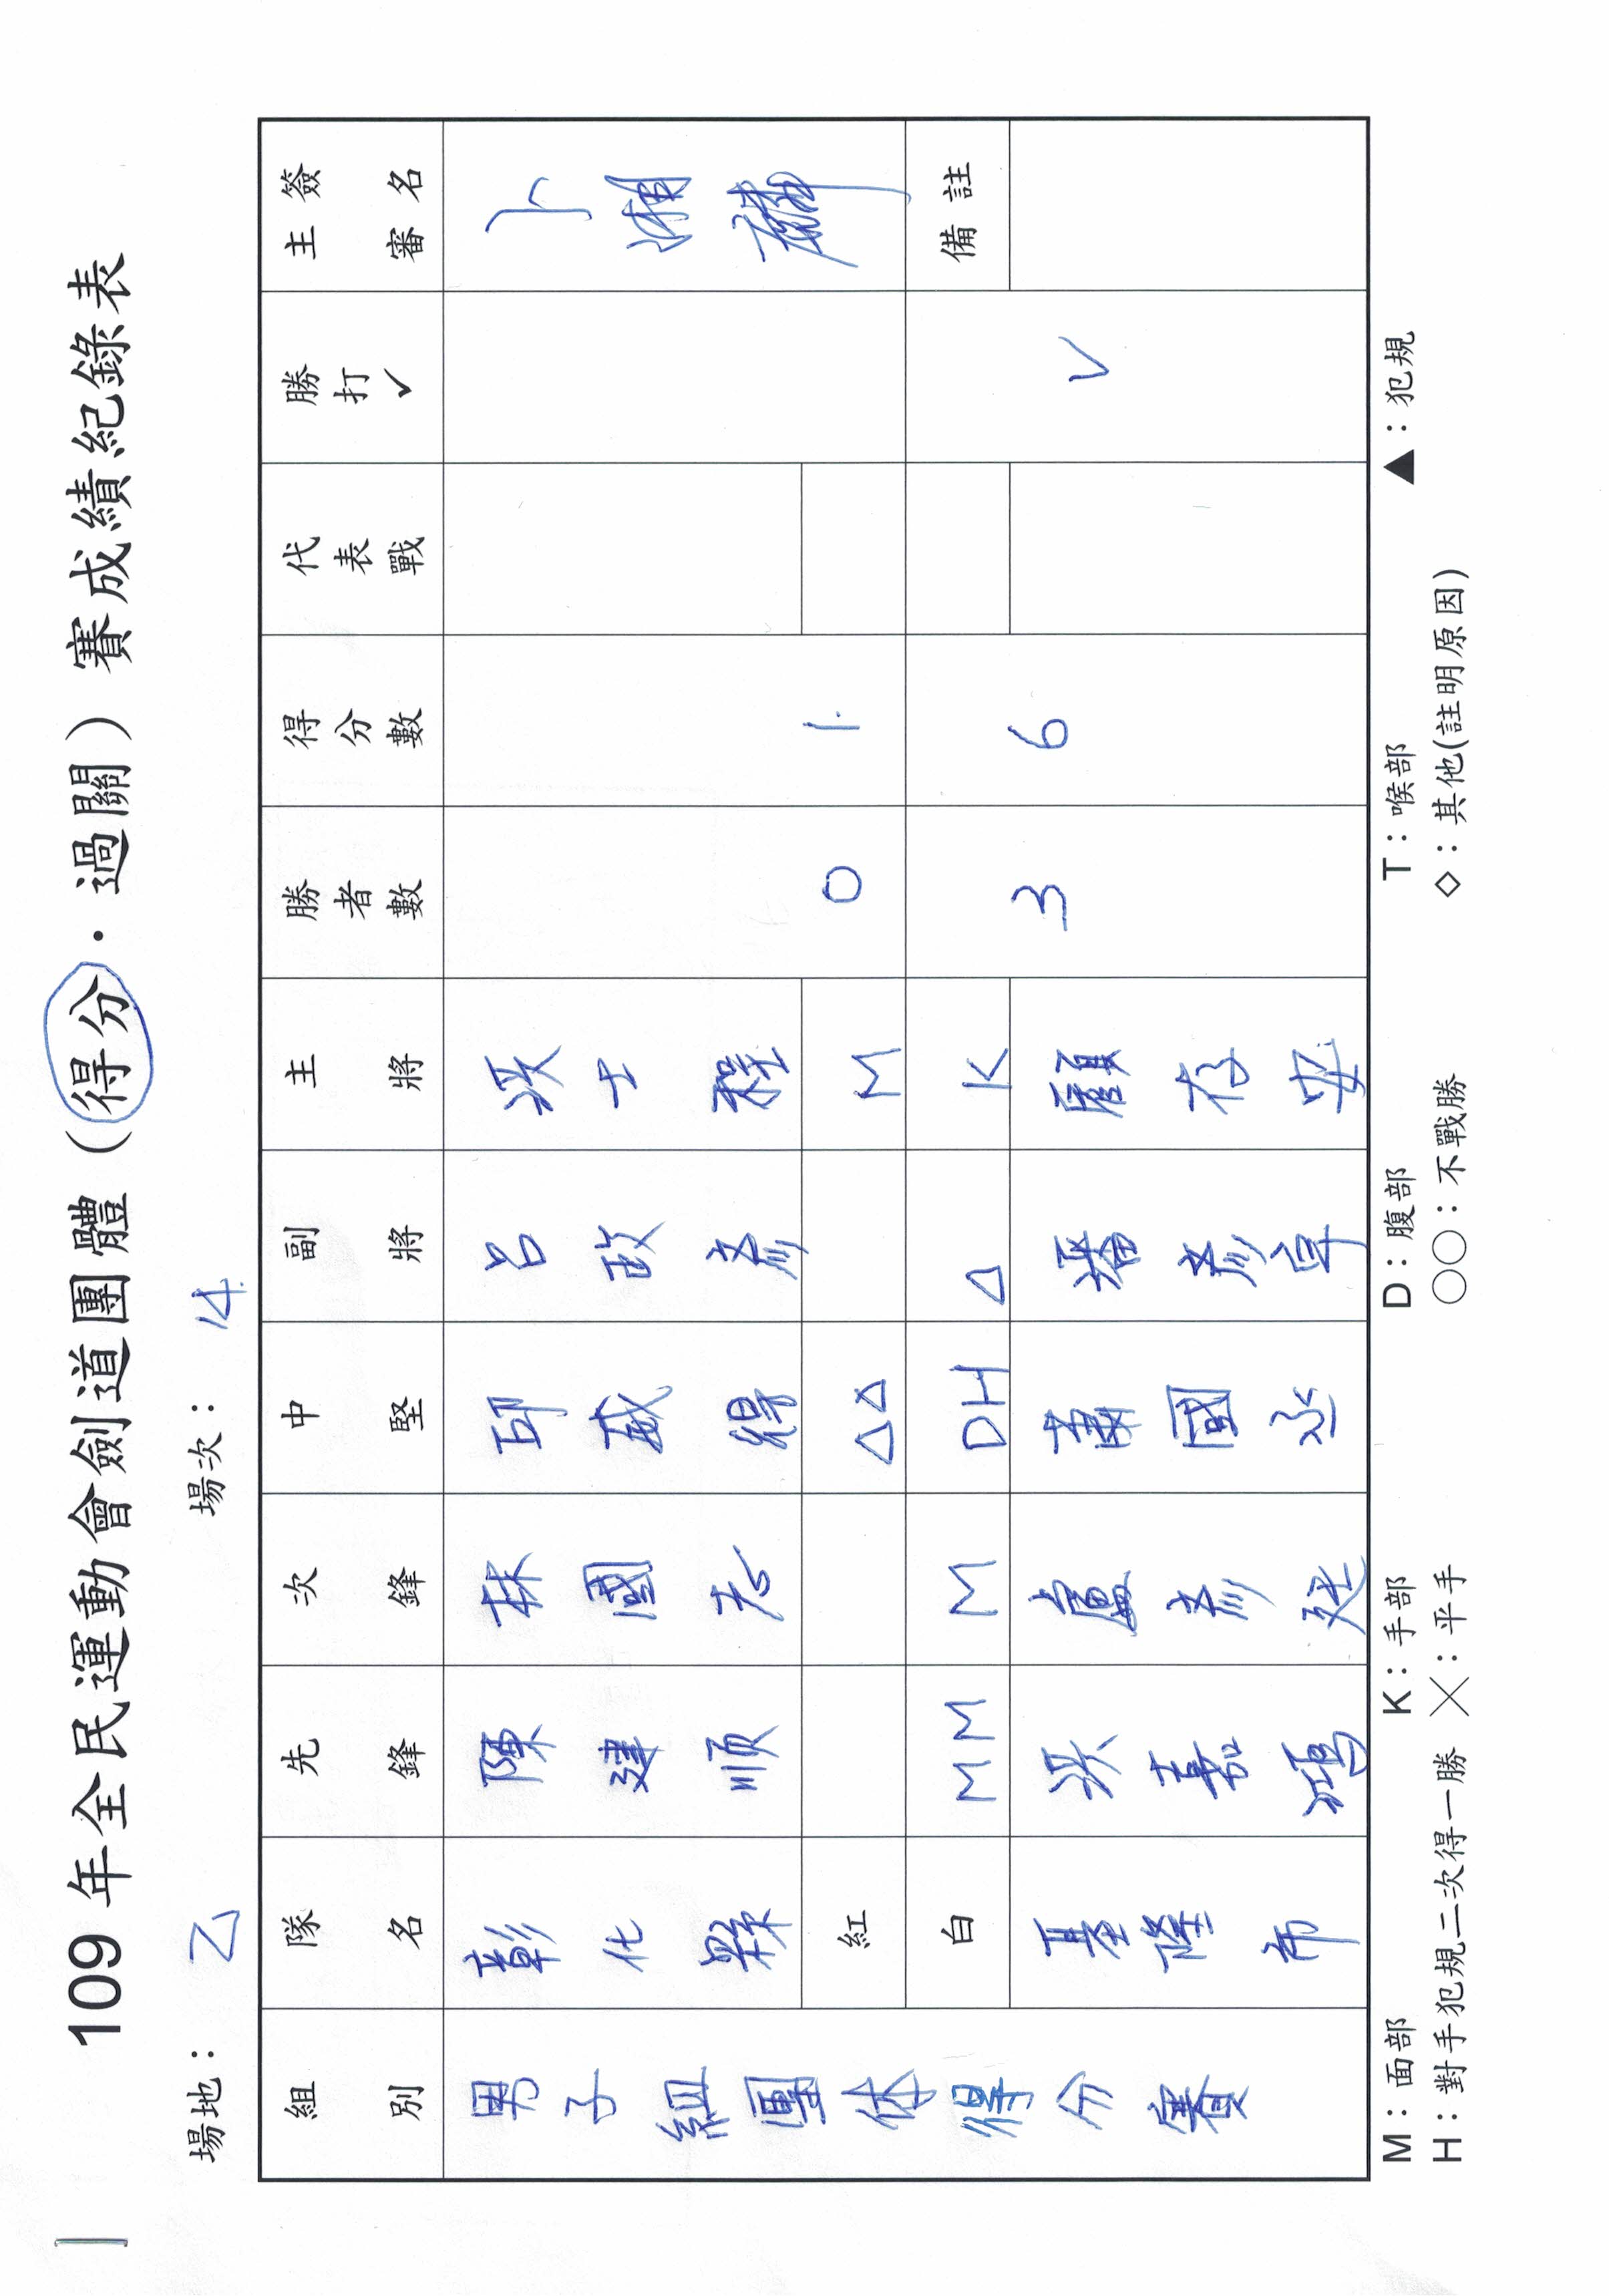 109 年全民運動會劍道團體（得分・過關）賽成績紀錄表
場地： 乙 場次： 14
組別 隊名 先鋒 次鋒 中堅 副將 主將 勝者數 得分數 代表戰 勝打✓ 主審簽名
男子組團体得分賽 彰化縣 陳建順 林國志 邱威得 呂政彥 士程
紅 △△ M 0 1
白 MM M DH △ K 3 6 備註
基隆市 洪嘉鴻 盧彥廷 蕭國丞 潘彥卓 顧存安 V
M：面部 K：手部 D：腹部 T：喉部 ▲：犯規
H：對手犯規二次得一勝 ╳：平手 ○○：不戰勝 ◇：其他(註明原因)